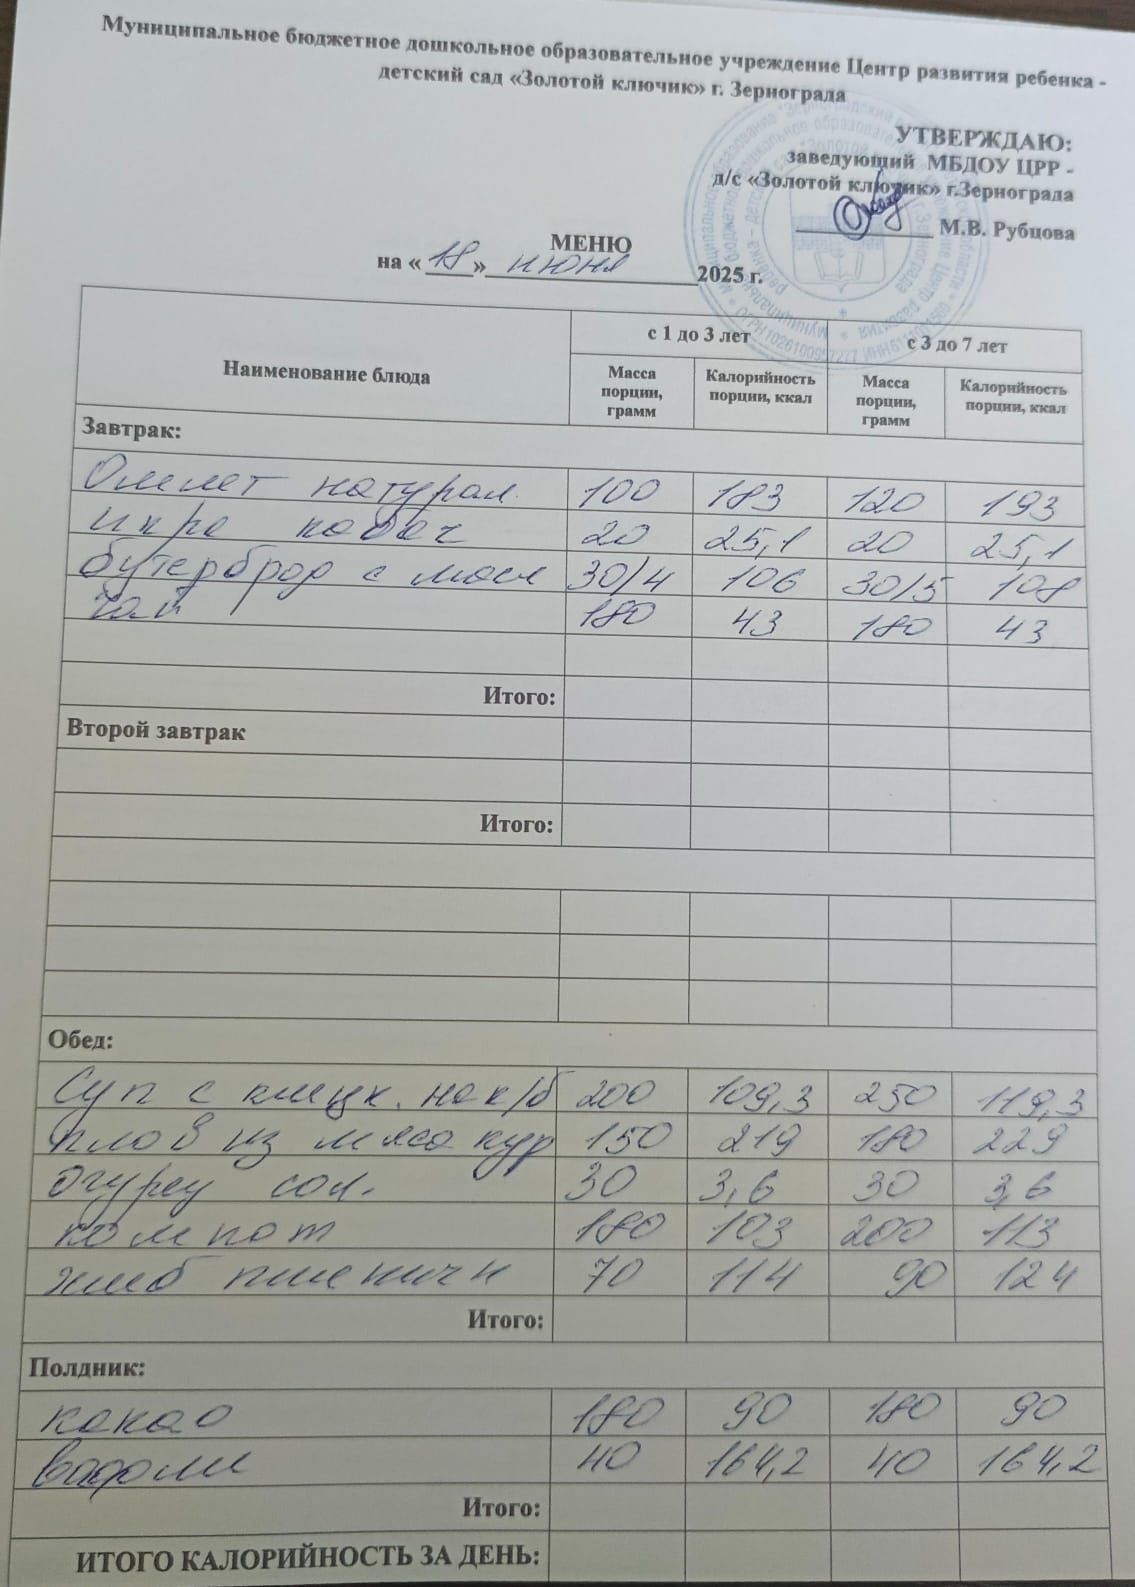 Муниципальное бюджетное дошкольное образовательное учреждение Центр развития ребенка -
детский сад «Золотой ключик» г. Зернограда
УТВЕРЖДАЮ:
заведующий МБДОУ ЦРР -
д/с «Золотой ключик» г.Зернограда
М.В. Рубцова
МЕНЮ
на « 18 » июня 2025 г.
Наименование блюда с 1 до 3 лет с 3 до 7 лет
Масса порции, грамм Калорийность порции, ккал Масса порции, грамм Калорийность порции, ккал
Завтрак:
Омлет натурал. 100 183 120 193
икра кабач 20 25,1 20 25,1
бутерброд с масл 30/4 106 30/5 108
чай 180 43 180 43
Итого:
Второй завтрак
Итого:
Обед:
Суп с клецк. на к/б 200 109,3 250 119,3
плов из мяса кур 150 219 180 229
огурец сол. 30 3,6 30 3,6
компот 180 103 200 113
хлеб пшеничн 70 114 90 124
Итого:
Полдник:
какао 180 90 180 90
вафли 40 164,2 40 164,2
Итого:
ИТОГО КАЛОРИЙНОСТЬ ЗА ДЕНЬ: